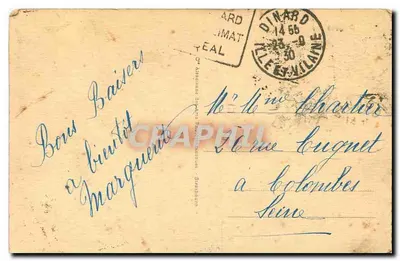 ARD
IMAT
EAL
DINARD
14 55
23 - 9
30
ILLE ET VILAINE
Bons Baisers
a bientôt
Marguerite
Mr Mme Chartier
26 rue Cugnet
a Colombes
Seine
CPAPHIL